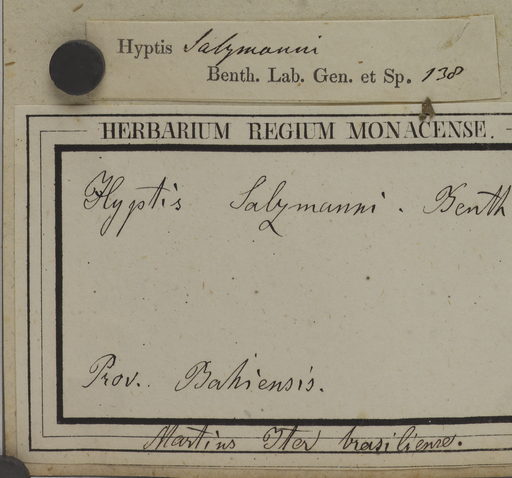 Hyptis Salzmanni
Benth. Lab. Gen. et Sp. 138
HERBARIUM REGIUM MONACENSE.
Hyptis Salzmanni. Benth
Prov. Bahiensis.
Martius Iter brasiliense.